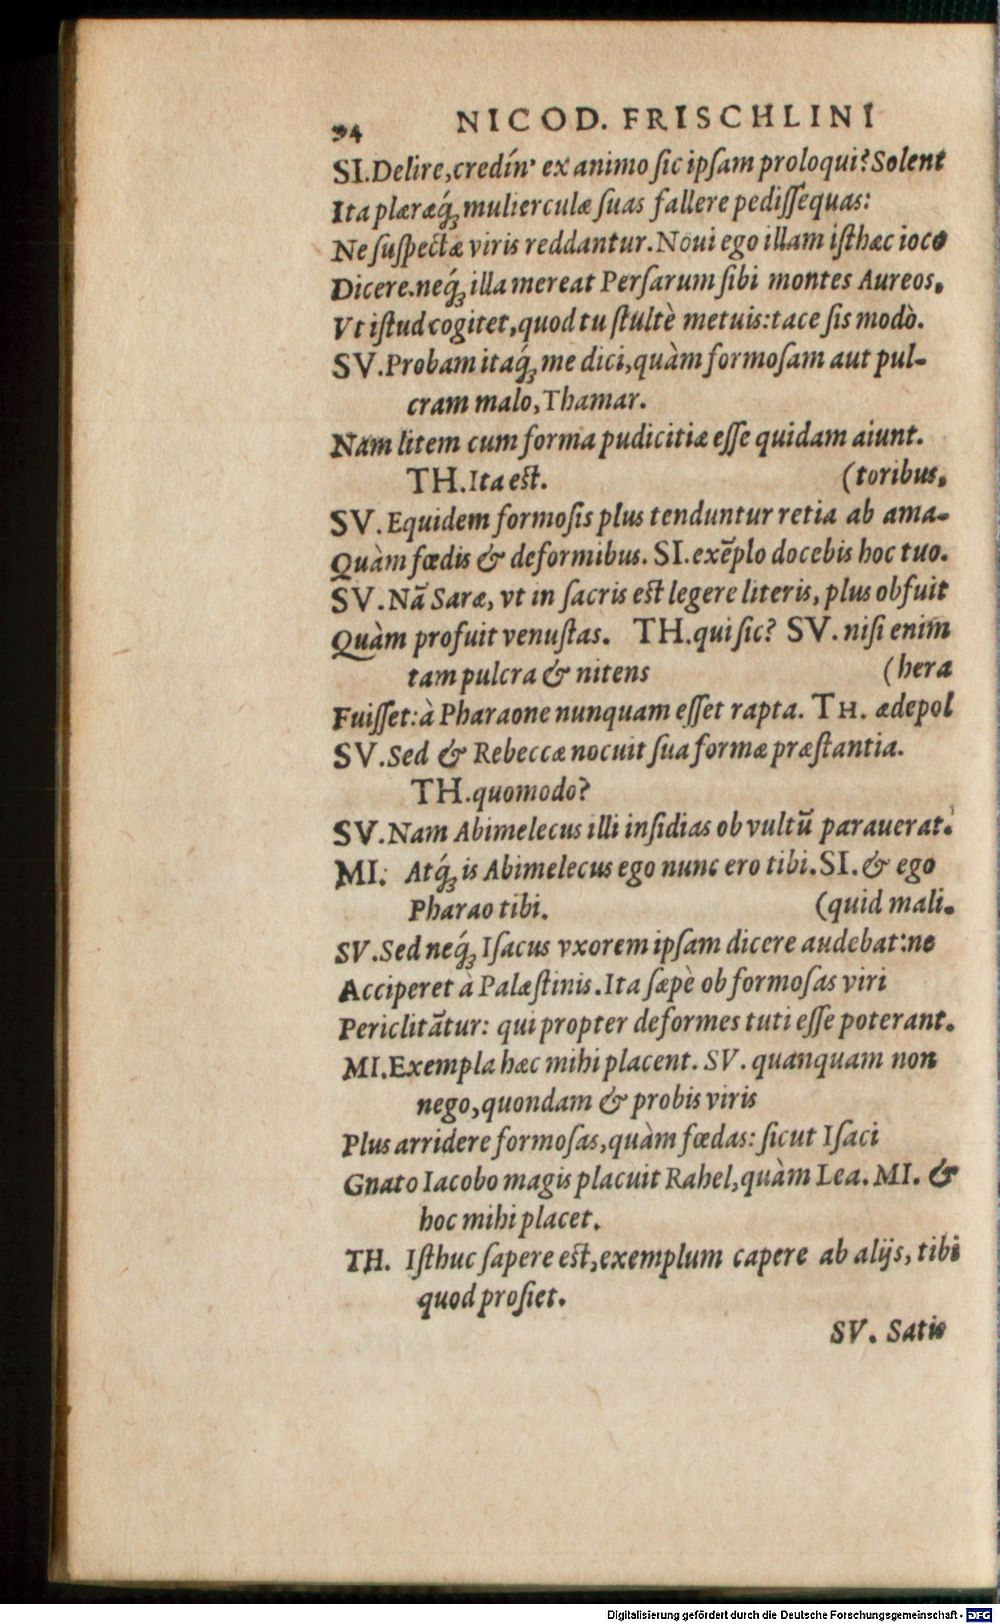 94 NICOD. FRISCHLINI
SI. Delire, credín' ex animo ſic ipſam proloqui? Solent
Ita plæræq́ꝫ mulierculæ ſuas fallere pediſſequas:
Ne ſuſpectæ viris reddantur. Noui ego illam iſthæc ioco
Dicere. neq́ꝫ illa mereat Perſarum ſibi montes Aureos.
Vt iſtud cogitet, quod tu ſtultè metuis: tace ſis modò.
SV. Probam itaq́ꝫ me dici, quàm formoſam aut pul-
cram malo, Thamar.
Nam litem cum forma pudicitiæ eſſe quidam aiunt.
TH. Ita eſt. (toribus.
SV. Equidem formoſis plus tenduntur retia ab ama-
Quàm fœdis & deformibus. SI. exẽplo docebis hoc tuo.
SV. Nã Saræ, vt in ſacris eſt legere literis, plus obfuit
Quàm profuit venuſtas. TH. qui ſic? SV. niſi enim
tam pulcra & nitens (hera
Fuiſſet: à Pharaone nunquam eſſet rapta. TH. ædepol
SV. Sed & Rebeccæ nocuit ſua formæ præſtantia.
TH. quomodo?
SV. Nam Abimelecus illi inſidias ob vultũ parauerat.
MI. Atq́ꝫ is Abimelecus ego nunc ero tibi. SI. & ego
Pharao tibi. (quid mali.
SV. Sed neq́ꝫ Iſacus vxorem ipſam dicere audebat: ne
Acciperet à Palæſtinis. Ita ſæpè ob formoſas viri
Periclitãtur: qui propter deformes tuti eſſe poterant.
MI. Exempla hæc mihi placent. SV. quanquam non
nego, quondam & probis viris
Plus arridere formoſas, quàm fœdas: ſicut Iſaci
Gnato Iacobo magis placuit Rahel, quàm Lea. MI. &
hoc mihi placet.
TH. Iſthuc ſapere eſt, exemplum capere ab alijs, tibi
quod proſiet.
SV. Satis
Digitalisierung gefördert durch die Deutsche Forschungsgemeinschaft - DFG